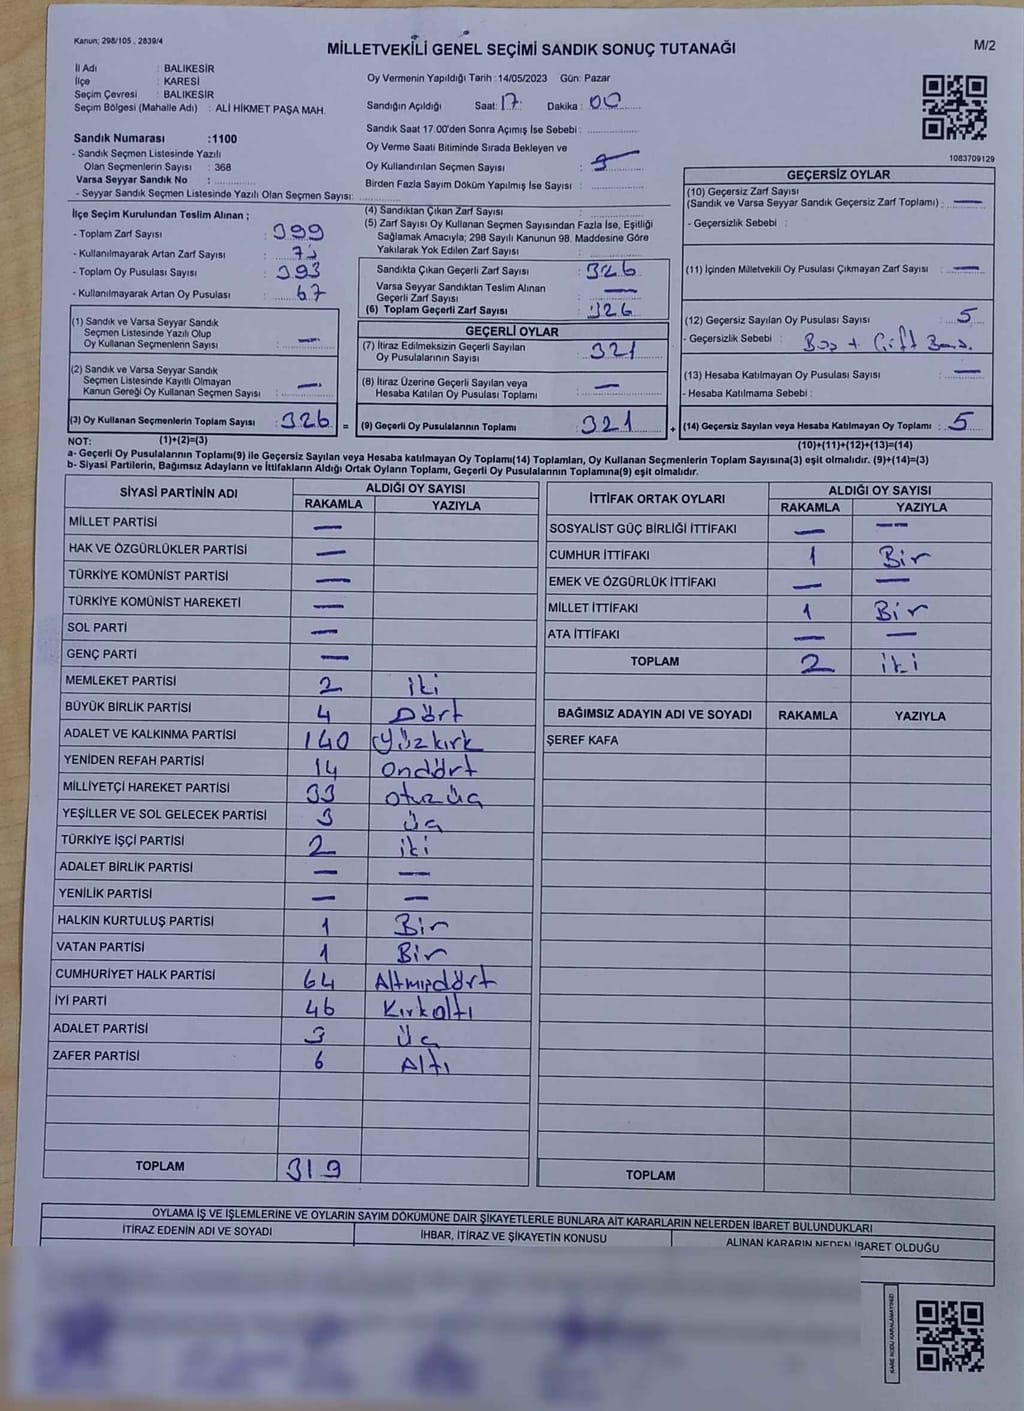 Kanun; 298/105 , 2839/4
MİLLETVEKİLİ GENEL SEÇİMİ SANDIK SONUÇ TUTANAĞI
M/2
İl Adı : BALIKESİR
İlçe : KARESİ
Seçim Çevresi : BALIKESİR
Seçim Bölgesi (Mahalle Adı) : ALİ HİKMET PAŞA MAH.
Sandık Numarası :1100
- Sandık Seçmen Listesinde Yazılı
Olan Seçmenlerin Sayısı : 368
Varsa Seyyar Sandık No :
- Seyyar Sandık Seçmen Listesinde Yazılı Olan Seçmen Sayısı:
Oy Vermenin Yapıldığı Tarih :14/05/2023 Gün: Pazar
Sandığın Açıldığı Saat: 17 Dakika : 00
Sandık Saat 17.00'den Sonra Açımış İse Sebebi :
Oy Verme Saati Bitiminde Sırada Bekleyen ve
Oy Kullandırılan Seçmen Sayısı :
Birden Fazla Sayım Döküm Yapılmış İse Sayısı :
1083709129
İlçe Seçim Kurulundan Teslim Alınan ;
- Toplam Zarf Sayısı : 399
- Kullanılmayarak Artan Zarf Sayısı : 73
- Toplam Oy Pusulası Sayısı : 393
- Kullanılmayarak Artan Oy Pusulası : 67
(1) Sandık ve Varsa Seyyar Sandık
Seçmen Listesinde Yazılı Olup
Oy Kullanan Seçmenlerin Sayısı : —
(2) Sandık ve Varsa Seyyar Sandık
Seçmen Listesinde Kayıtlı Olmayan
Kanun Gereği Oy Kullanan Seçmen Sayısı : —
(3) Oy Kullanan Seçmenlerin Toplam Sayısı : 326
(1)+(2)=(3)
(4) Sandıktan Çıkan Zarf Sayısı :
(5) Zarf Sayısı Oy Kullanan Seçmen Sayısından Fazla İse, Eşitliği
Sağlamak Amacıyla; 298 Sayılı Kanunun 98. Maddesine Göre
Yakılarak Yok Edilen Zarf Sayısı :
Sandıkta Çıkan Geçerli Zarf Sayısı : 326
Varsa Seyyar Sandıktan Teslim Alınan
Geçerli Zarf Sayısı : —
(6) Toplam Geçerli Zarf Sayısı : 326
GEÇERLİ OYLAR
(7) İtiraz Edilmeksizin Geçerli Sayılan
Oy Pusulalarının Sayısı : 321
(8) İtiraz Üzerine Geçerli Sayılan veya
Hesaba Katılan Oy Pusulası Toplamı : —
= (9) Geçerli Oy Pusulalarının Toplamı : 321
GEÇERSİZ OYLAR
(10) Geçersiz Zarf Sayısı
(Sandık ve Varsa Seyyar Sandık Geçersiz Zarf Toplamı) : —
- Geçersizlik Sebebi :
(11) İçinden Milletvekili Oy Pusulası Çıkmayan Zarf Sayısı : —
(12) Geçersiz Sayılan Oy Pusulası Sayısı : 5
- Geçersizlik Sebebi : Boş + Çift
(13) Hesaba Katılmayan Oy Pusulası Sayısı : —
- Hesaba Katılmama Sebebi :
+ (14) Geçersiz Sayılan veya Hesaba Katılmayan Oy Toplamı : 5
(10)+(11)+(12)+(13)=(14)
NOT:
a- Geçerli Oy Pusulalarının Toplamı(9) ile Geçersiz Sayılan veya Hesaba katılmayan Oy Toplamı(14) Toplamları, Oy Kullanan Seçmenlerin Toplam Sayısına(3) eşit olmalıdır. (9)+(14)=(3)
b- Siyasi Partilerin, Bağımsız Adayların ve İttifakların Aldığı Ortak Oyların Toplamı, Geçerli Oy Pusulalarının Toplamına(9) eşit olmalıdır.
SİYASİ PARTİNİN ADI ALDIĞI OY SAYISI
RAKAMLA YAZIYLA
MİLLET PARTİSİ —
HAK VE ÖZGÜRLÜKLER PARTİSİ —
TÜRKİYE KOMÜNİST PARTİSİ —
TÜRKİYE KOMÜNİST HAREKETİ —
SOL PARTİ —
GENÇ PARTİ —
MEMLEKET PARTİSİ 2 iki
BÜYÜK BİRLİK PARTİSİ 4 Dört
ADALET VE KALKINMA PARTİSİ 140 Yüzkırk
YENİDEN REFAH PARTİSİ 14 Ondört
MİLLİYETÇİ HAREKET PARTİSİ 33 otuzüç
YEŞİLLER VE SOL GELECEK PARTİSİ 3 üç
TÜRKİYE İŞÇİ PARTİSİ 2 iki
ADALET BİRLİK PARTİSİ — —
YENİLİK PARTİSİ — —
HALKIN KURTULUŞ PARTİSİ 1 Bir
VATAN PARTİSİ 1 Bir
CUMHURİYET HALK PARTİSİ 64 Altmışdört
İYİ PARTİ 46 Kırkaltı
ADALET PARTİSİ 3 Üç
ZAFER PARTİSİ 6 Altı
TOPLAM 319
İTTİFAK ORTAK OYLARI ALDIĞI OY SAYISI
RAKAMLA YAZIYLA
SOSYALİST GÜÇ BİRLİĞİ İTTİFAKI — —
CUMHUR İTTİFAKI 1 Bir
EMEK VE ÖZGÜRLÜK İTTİFAKI — —
MİLLET İTTİFAKI 1 Bir
ATA İTTİFAKI — —
TOPLAM 2 iki
BAĞIMSIZ ADAYIN ADI VE SOYADI RAKAMLA YAZIYLA
ŞEREF KAFA
TOPLAM
OYLAMA İŞ VE İŞLEMLERİNE VE OYLARIN SAYIM DÖKÜMÜNE DAİR ŞİKAYETLERLE BUNLARA AİT KARARLARIN NELERDEN İBARET BULUNDUKLARI
İTİRAZ EDENİN ADI VE SOYADI İHBAR, İTİRAZ VE ŞİKAYETİN KONUSU ALINAN KARARIN NEDEN İBARET OLDUĞU
KARE KODU KARALAMAYINIZ!